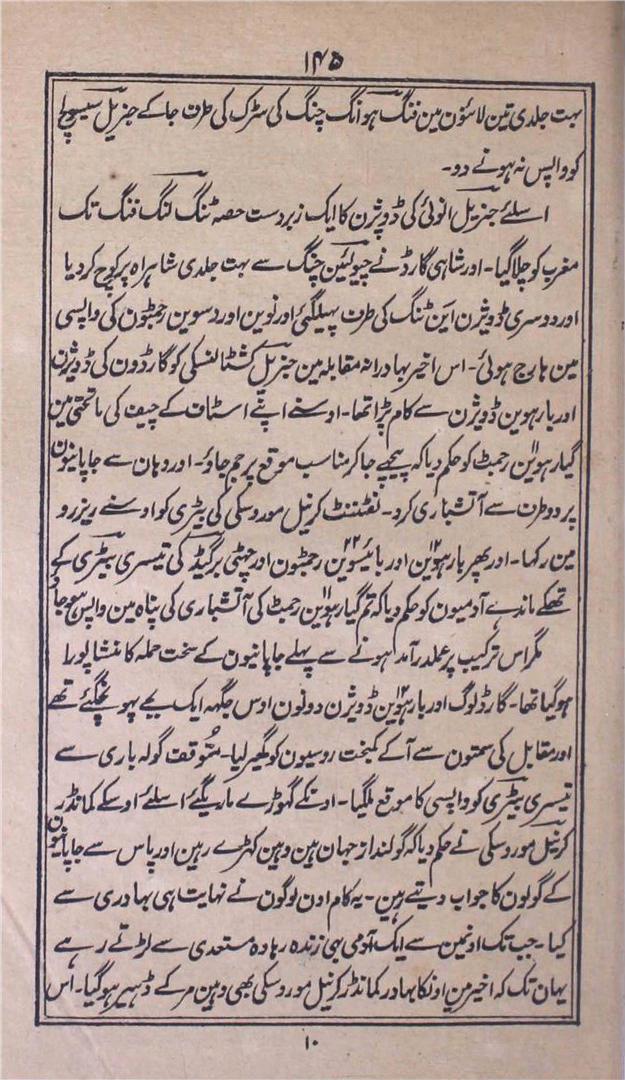 ۱۴۵
بہت جلدی تین لائنون مین فنگ ہوانگ چنگ کی سڑک کی طرف جاکے جنریل
کو واپس نہ ہونے دو۔
اسلئے جنریل انوئی کی ڈویژن کا ایک زبردست حصہ ٹنگ لنگ فنگ تک
مغرب کو چلا گیا۔ اور شاہی گارڈ نے چیولئین چنگ سے بہت جلدی شاہراہ پر کوچ کردیا
اور دوسری ڈویژن این ٹنگ کی طرف پھیلگئی اور نوین اور دسوین رجمٹون کی واپسی
مین ہارج ہوئی۔ اس اخیر بہادرانہ مقابلہ مین جنریل کشٹالنسکی کو گارڈون کی ڈویژن
اور بارہوین ڈویژن سے کام پڑا تھا۔ اوسنے اپنے اسٹاف کے چیف کی ماتحتی مین
گیارہوین رجمٹ کو حکم دیا کہ پیچھے جاکر مناسب موقع پر جم جاؤ۔ اور وہان سے جاپانیون
پر دو طرف سے آتشباری کرو۔ لفٹننٹ کرنیل موروسکی کی بیٹری کو اوسنے ریزرو
مین رکھا۔ اور پھر بارہوین ۱۲ اور بائیسوین ۲۲ رجمٹون اور چھٹی برگیڈ کی تیسری بیٹری کے
تھکے ماندے آدمیون کو حکم دیا کہ تم گیارہوین رجمٹ کی آتشباری کی پناہ مین واپس ہوجاؤ
مگر اس ترکیب پر عملدرآمد ہونے سے پہلے جاپانیون کے سخت حملہ کا منشا پورا
ہوگیا تھا۔ گارڈ لوگ اور بارہوین ۱۲ ڈویژن دونون اوس جگہہ ایک پہونچگئے تھے
اور مقابل کی سمتون سے آکے کمبخت روسیون کو گھیر لیا۔ متوقف گولہ باری سے
تیسری بیٹری کو واپسی کا موقع ملگیا۔ اونکے گھوڑے مارے گئے اسلئے اوسکے کمانڈر
کرنیل موروسکی نے حکم دیا کہ گولنداز جہان ہین وہین کھڑے رہین اور پاس سے جاپانیون
کے گولون کا جواب دیتے ہین۔ یہ کام اون لوگون نے نہایت ہی بہادری سے
کیا۔ جب تک اونمین سے ایک آدمی بہی زندہ رہا وہ مستعدی سے لڑتے رہے
یہان تک کہ اخیر مین اونکا بہادر کمانڈر کرنیل موروسکی بھی وہین مرکے ڈھیر ہوگیا۔ اس
۱۰